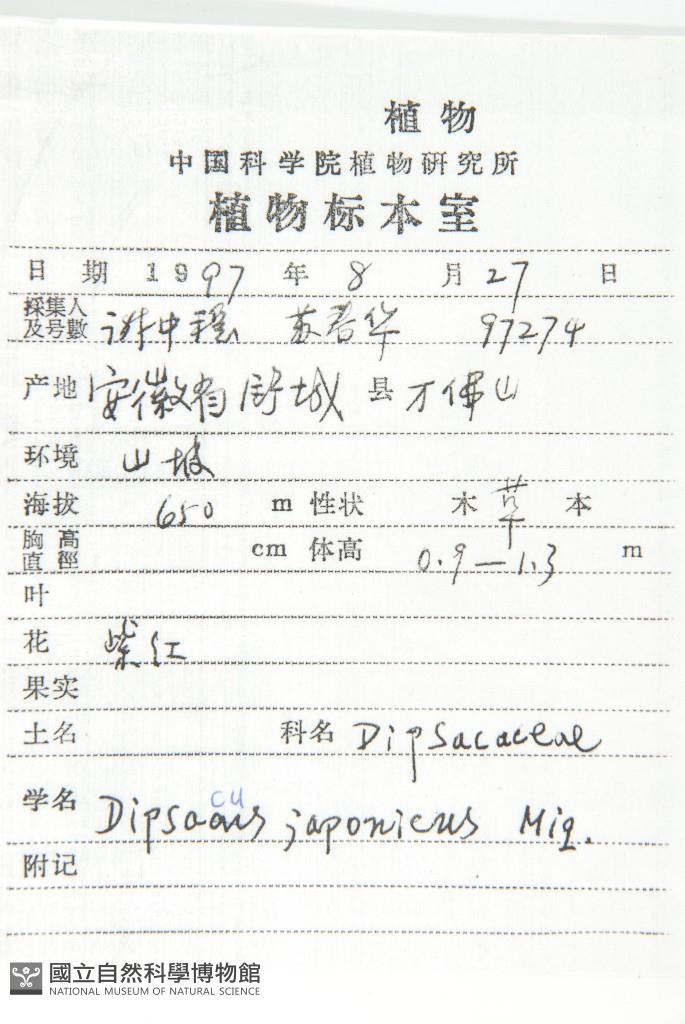 植物
中国科学院植物研究所
植物标本室
日 期 1997 年 8 月 27 日
採集人及号數 谢中稳 苏春华 97274
产地 安徽省舒城县万佛山
环境 山坡
海拔 650 m 性状 木 草 本
胸高直徑 cm 体高 0.9—1.3 m
叶
花 紫红
果实
土名 科名 Dipsacaceae
cu
学名 Dipsacus japonicus Miq.
附记
國立自然科學博物館
NATIONAL MUSEUM OF NATURAL SCIENCE